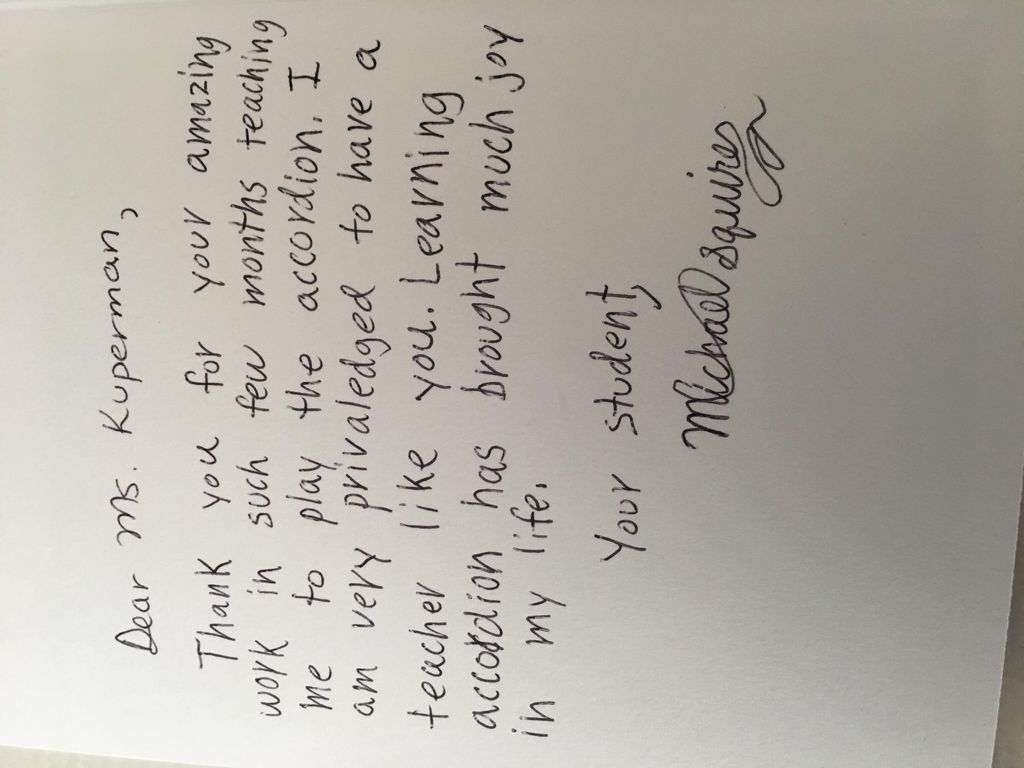 Dear Ms. Kuperman,
Thank you for your amazing
work in such few months teaching
me to play the accordion. I
am very privaledged to have a
teacher like you. Learning
accordion has brought much joy
in my life.
Your student,
Michael Squires